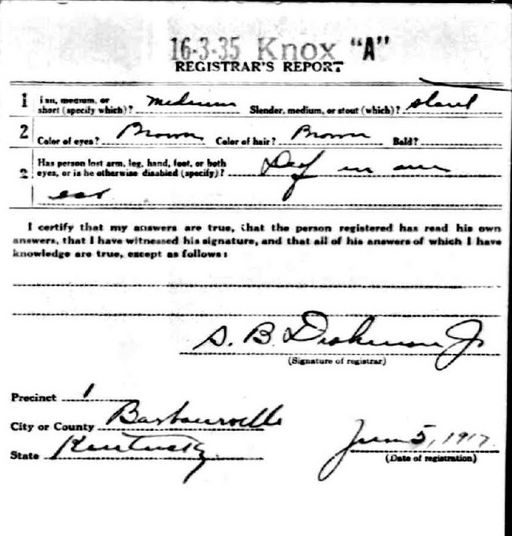 16-3-35 Knox "A"
REGISTRAR'S REPORT
1 Tall, medium, or short (specify which)? medium Slender, medium, or stout (which)? stout
2 Color of eyes? Brown Color of hair? Brown Bald?
3 Has person lost arm, leg, hand, foot, or both
eyes, or is he otherwise disabled (specify)? Deaf in one
ear
I certify that my answers are true, that the person registered has read his own
answers, that I have witnessed his signature, and that all of his answers of which I have
knowledge are true, except as follows:
S. B. Dishman Jr
(Signature of registrar)
Precinct 1
City or County Barbourville
State Kentucky
June 5, 1917
(Date of registration)